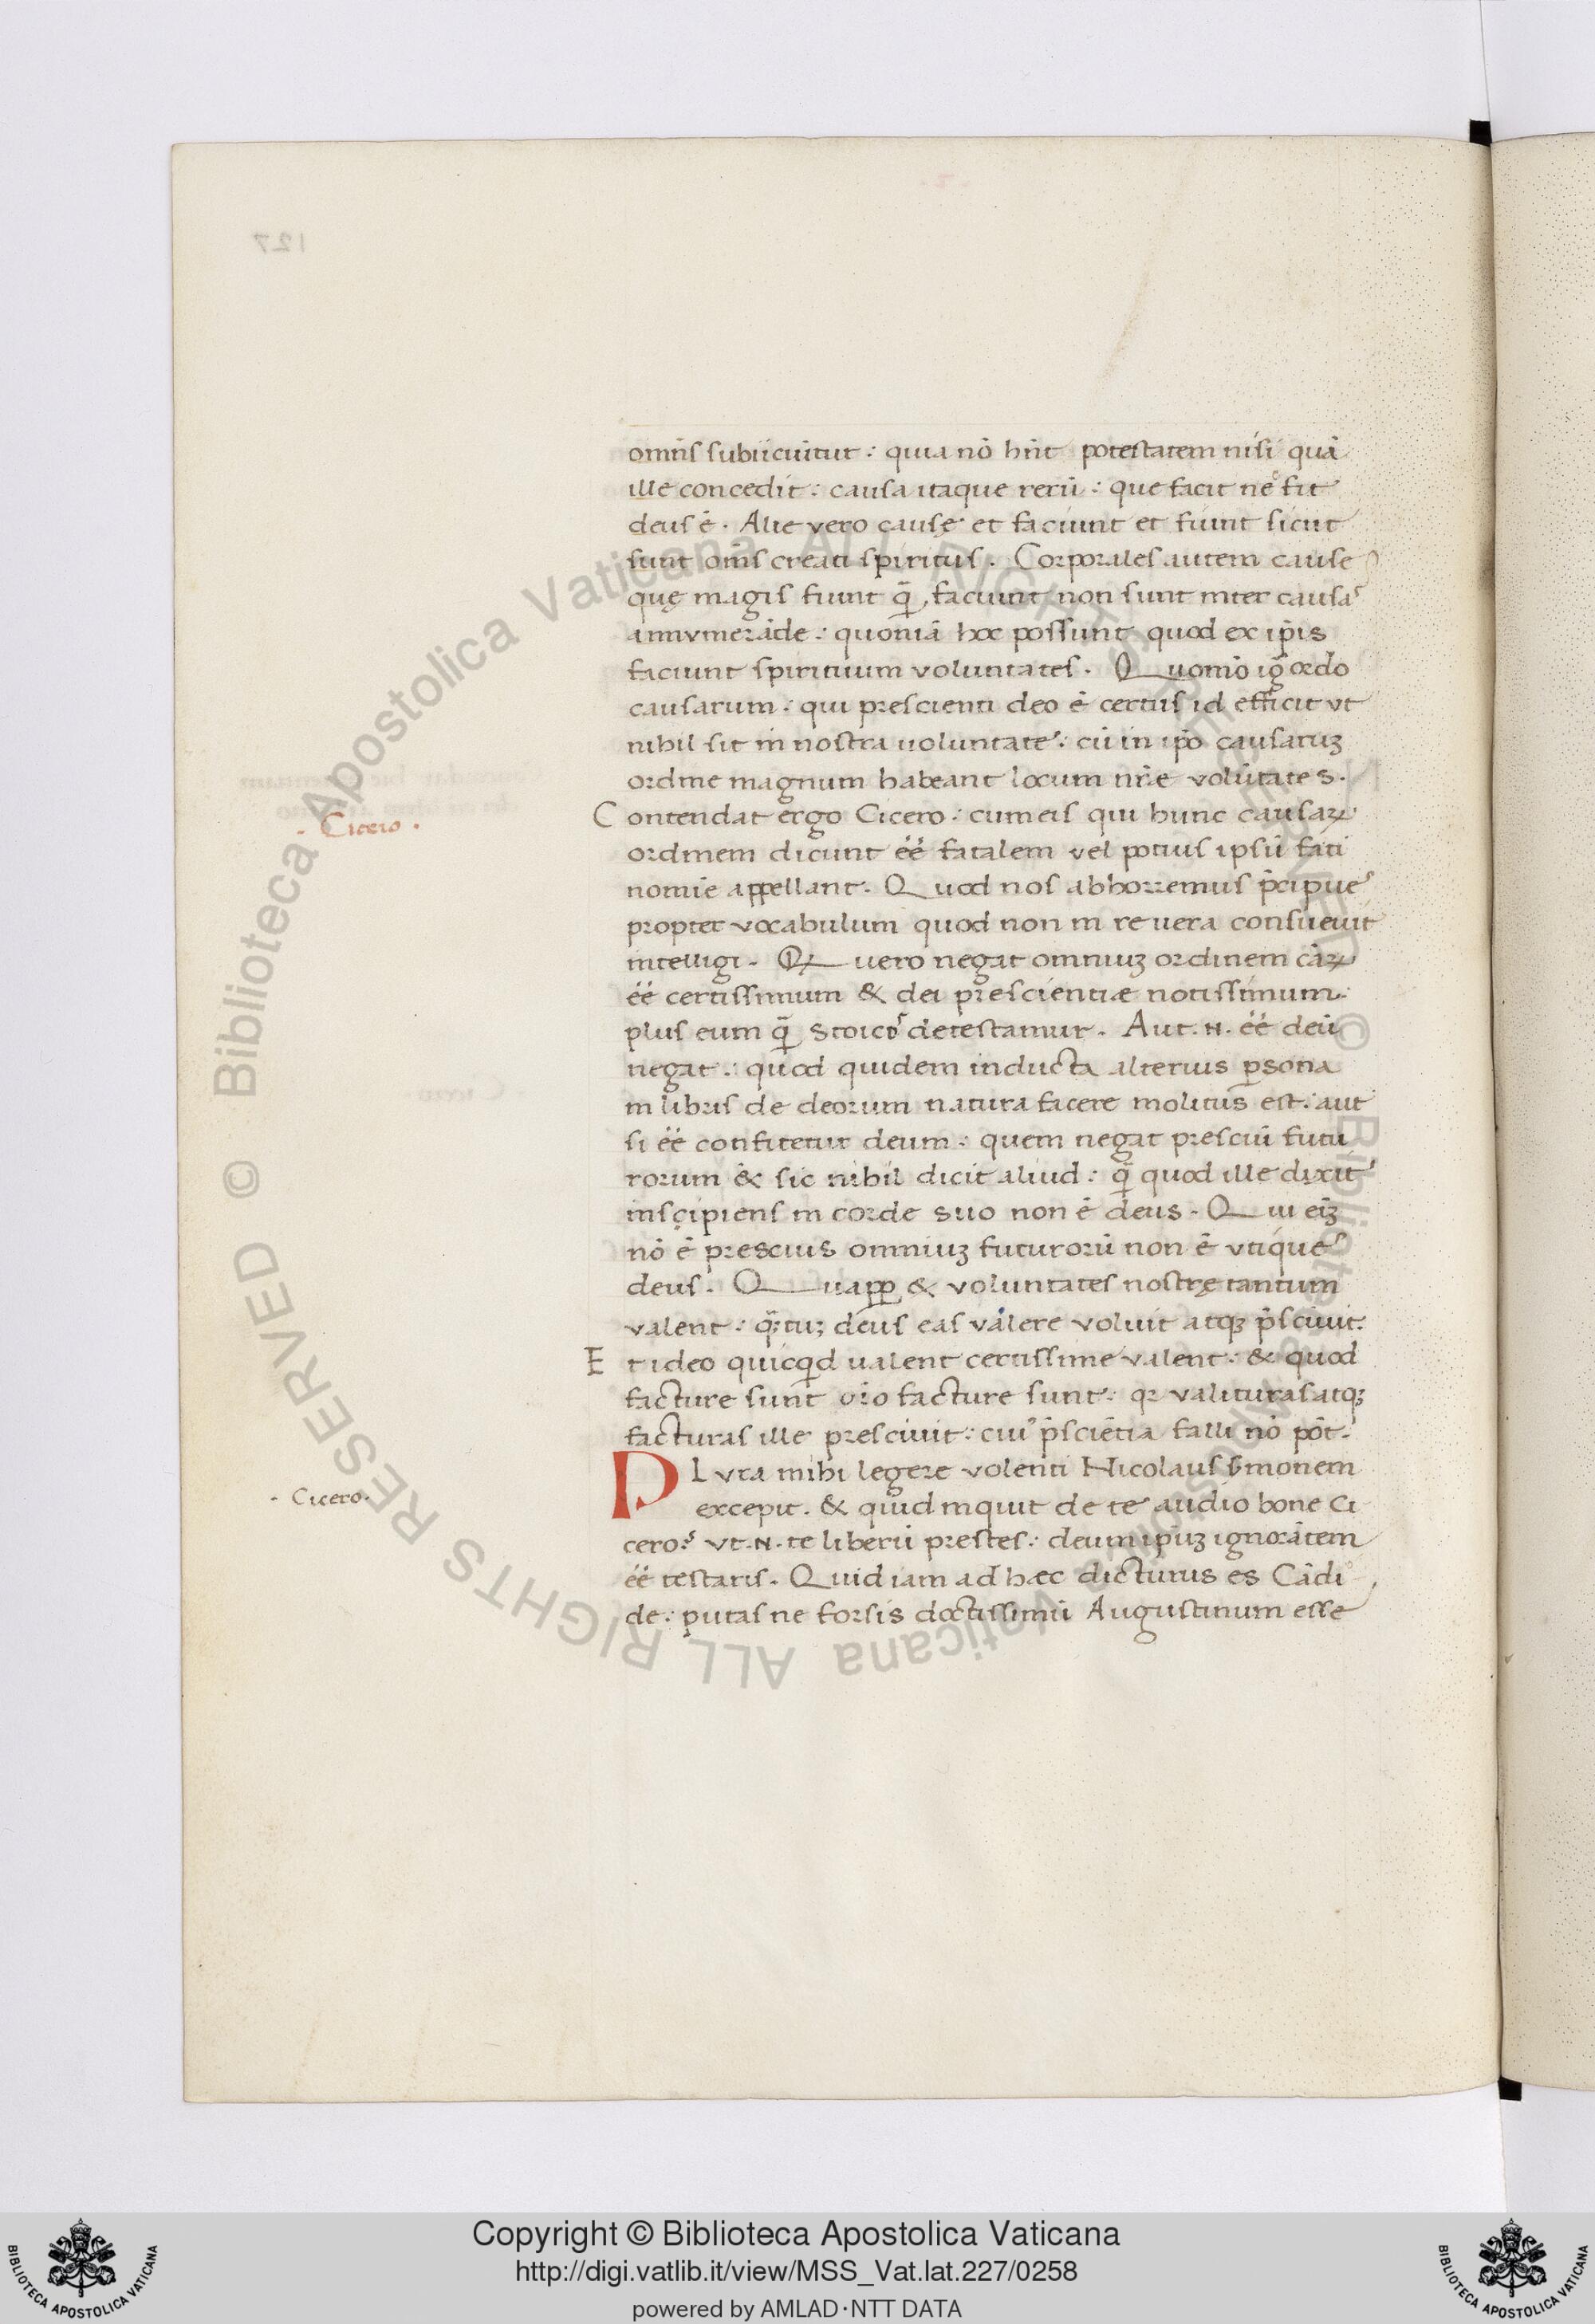 omn̄s subiiciūtur : quia nō hn̄t potestatem nisi quā
ille concedit : causa itaque rerū : que facit nec fit
deus ē . Alie vero causę et faciunt et fiunt sicut
sunt om̄s creati spiritus . Corporales autem cause
quę magis fiunt q̄ faciunt non sunt inter causas
annvmerāde : quoniā hoc possunt quod ex ip̄is
faciunt spirituum voluntates . Quomō ig̃ ordo
causarum : qui prescienti deo ē certus id efficit vt
nihil sit in nostra uoluntate : cū in ip̄o causaruꝫ
ordine magnum habeant locum nr̄e volūtates .
Contendat ergo Cicero : cum eis qui hunc causaꝝ
ordinem dicunt ēē fatalem vel potius ipsū fati
nomīe appellant . Quod nos abhorremus p̄cipue
propter vocabulum quod non in re uera consueuit
intelligi . Q uero negat omniuꝫ ordinem cāꝝ
ēē certissimum & dei prescientiæ notissimum :
plus eum q̄ stoicos detestamur . Aut . N . ēē deū
negat : quod quidem inducta alterius ꝑsona
in libris de deorum natura facere molitus est : aut
si ēē confitetur deum : quem negat presciū futu
rorum & sic nihil dicit aliud : q̄ quod ille dixit
inscipiens in corde suo non ē deus . Qui eīꝫ
nō ē prescius omniuꝫ futurorū non ē vtique
deus . Quaꝓp & voluntates nostrę tantum
valent : q̄ꝫtuꝫ deus eas valere voluit atqꝫ p̄sciuit .
Et ideo quicqͥd ualent certissime valent : & quod
facture sunt oīo facture sunt : qꝛ valituras atqꝫ
facturas ille presciuit : cuiꝰ p̄sciētia falli nō pōt .
PLvra mihi legere volenti Nicolaus s̄monem
excepit . & quid inquit de te audio bone Ci
cero ? vt . N . te liberū prestes : deum ip̄uꝫ ignorātem
ēē testaris . Quid iam ad hæc dicturus es Cādi
de : putas ne forsis doctissimū Augustinum esse
· Cicero ·
· Cicero ·
127
© Biblioteca Apostolica Vaticana ALL RIGHTS RESERVED © Biblioteca Apostolica Vaticana ALL RIGHTS RESERVED
Copyright © Biblioteca Apostolica Vaticana
http://digi.vatlib.it/view/MSS_Vat.lat.227/0258
powered by AMLAD·NTT DATA
BIBLIOTECA APOSTOLICA VATICANA
BIBLIOTECA APOSTOLICA VATICANA